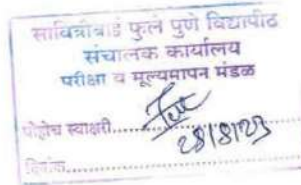 सावित्रीबाई फुले पुणे विद्यापीठ
संचालक कार्यालय
परीक्षा व मूल्यमापन मंडळ
पोहोच स्वाक्षरी..............
28/8/23
दिनांक..............